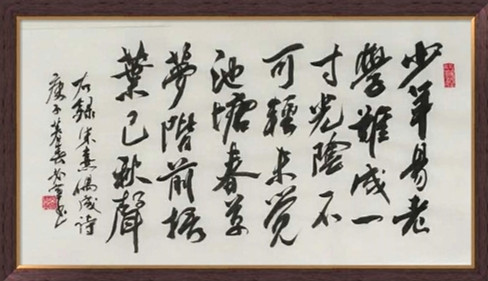 少年易老
學難成一
寸光陰不
可輕未覺
池塘春草
夢階前梧
葉已秋聲
右錄朱熹偶成詩
庚子暮春